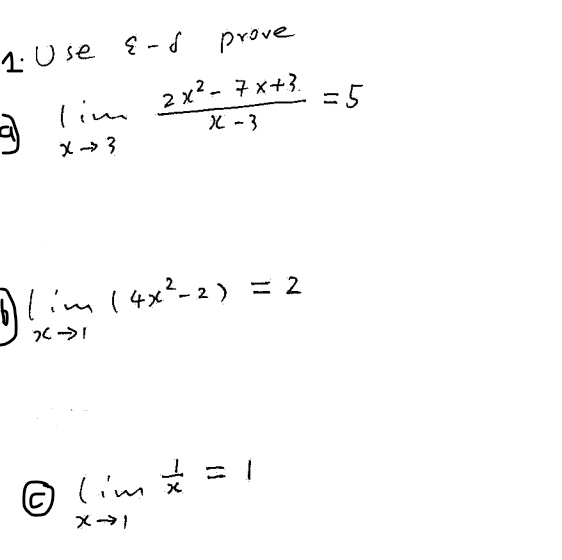 1. Use ε-δ prove
a) lim x→3 (2x² - 7x+3)/(x-3) = 5
b) lim x→1 (4x²-2) = 2
c) lim x→1 1/x = 1